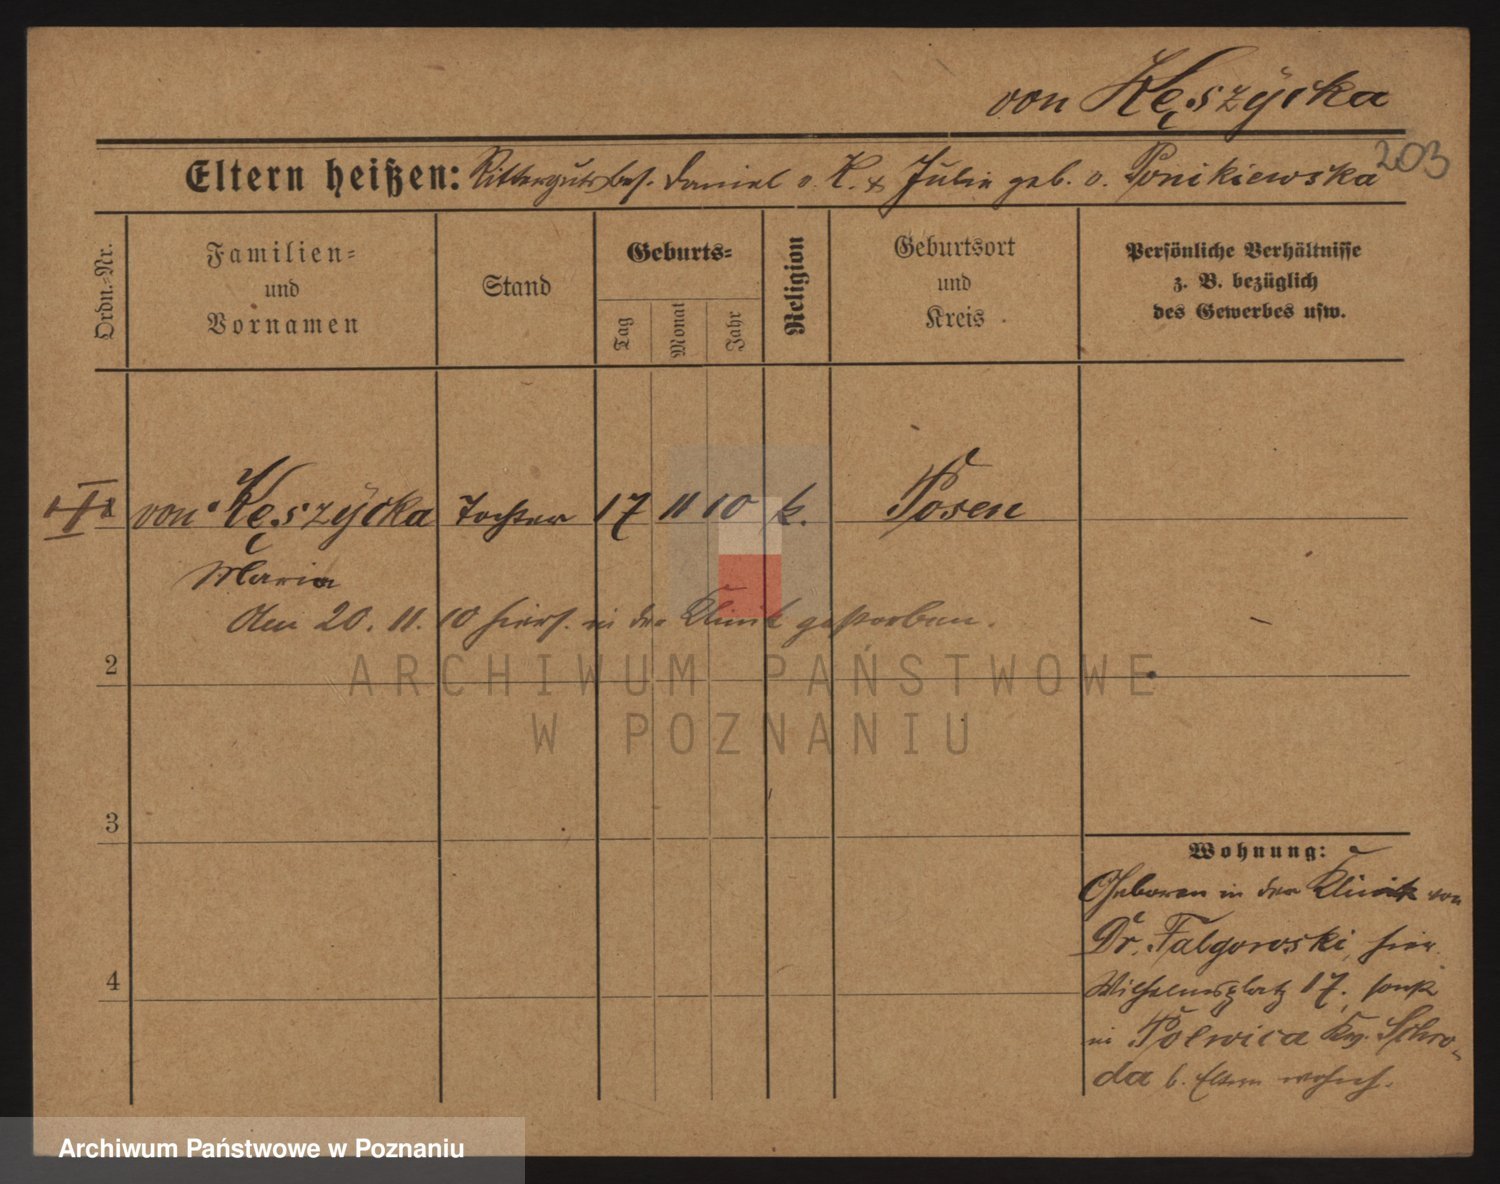 von Kęszÿcka
203
Eltern heißen: Rittergutsbes. Daniel v. K. & Julie geb. v. Ponikiewska
Ordn.-Nr.
Familien=
und
Vornamen
Stand
Geburts=
Tag
Monat
Jahr
Religion
Geburtsort
und
Kreis
Persönliche Verhältnisse
z. B. bezüglich
des Gewerbes usw.
von Kęszÿcka Tochter 17 11 10 k. Posen
Maria
Am 20. 11. 10 hiers. in der Klinik gestorben.
2
3
4
Wohnung:
Geboren in der Klinik von
Dr. Falgowski, hier
Wilhelmsplatz 17, sonst
in Polwica Kr. Schro-
da b. Eltern wohnh.
ARCHIWUM PAŃSTWOWE
W POZNANIU
Archiwum Państwowe w Poznaniu